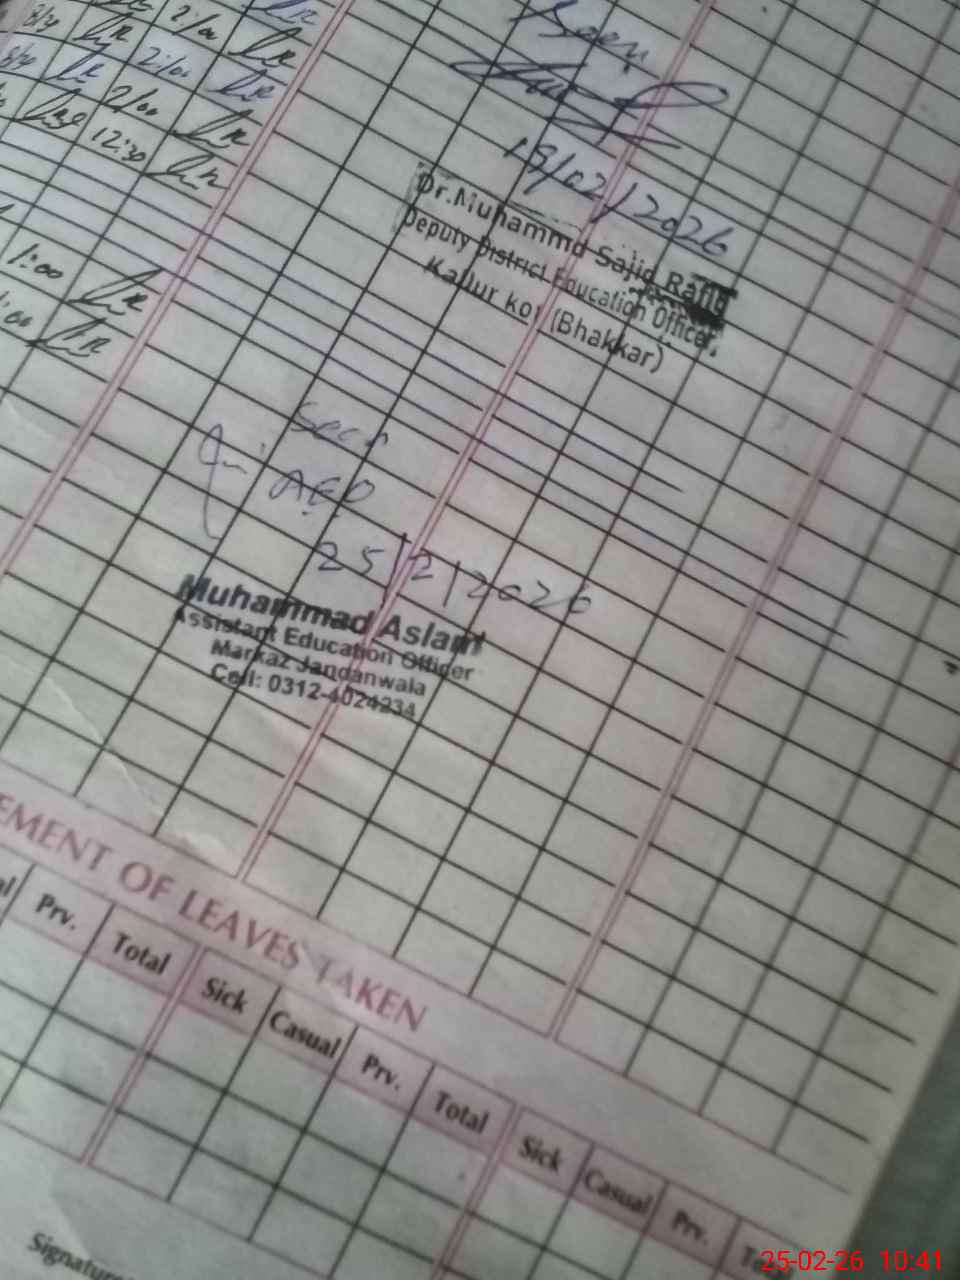 8/30 2:/00
8/30 2:/00
2/00
12:30
1:00
Seen
19/02/2026
Dr.Muhammd Sajid Rafiq
Deputy District Education Officer.
Kallur kot (Bhakkar)
Seen
AEO
25/2/2026
Muhammad Aslam
Assistant Education Officer
Markaz Jandanwala
Cell: 0312-4024234
EMENT OF LEAVES TAKEN
Prv. Total Sick Casual Prv. Total Sick Casual Prv.
Signatur
25-02-26 10:41